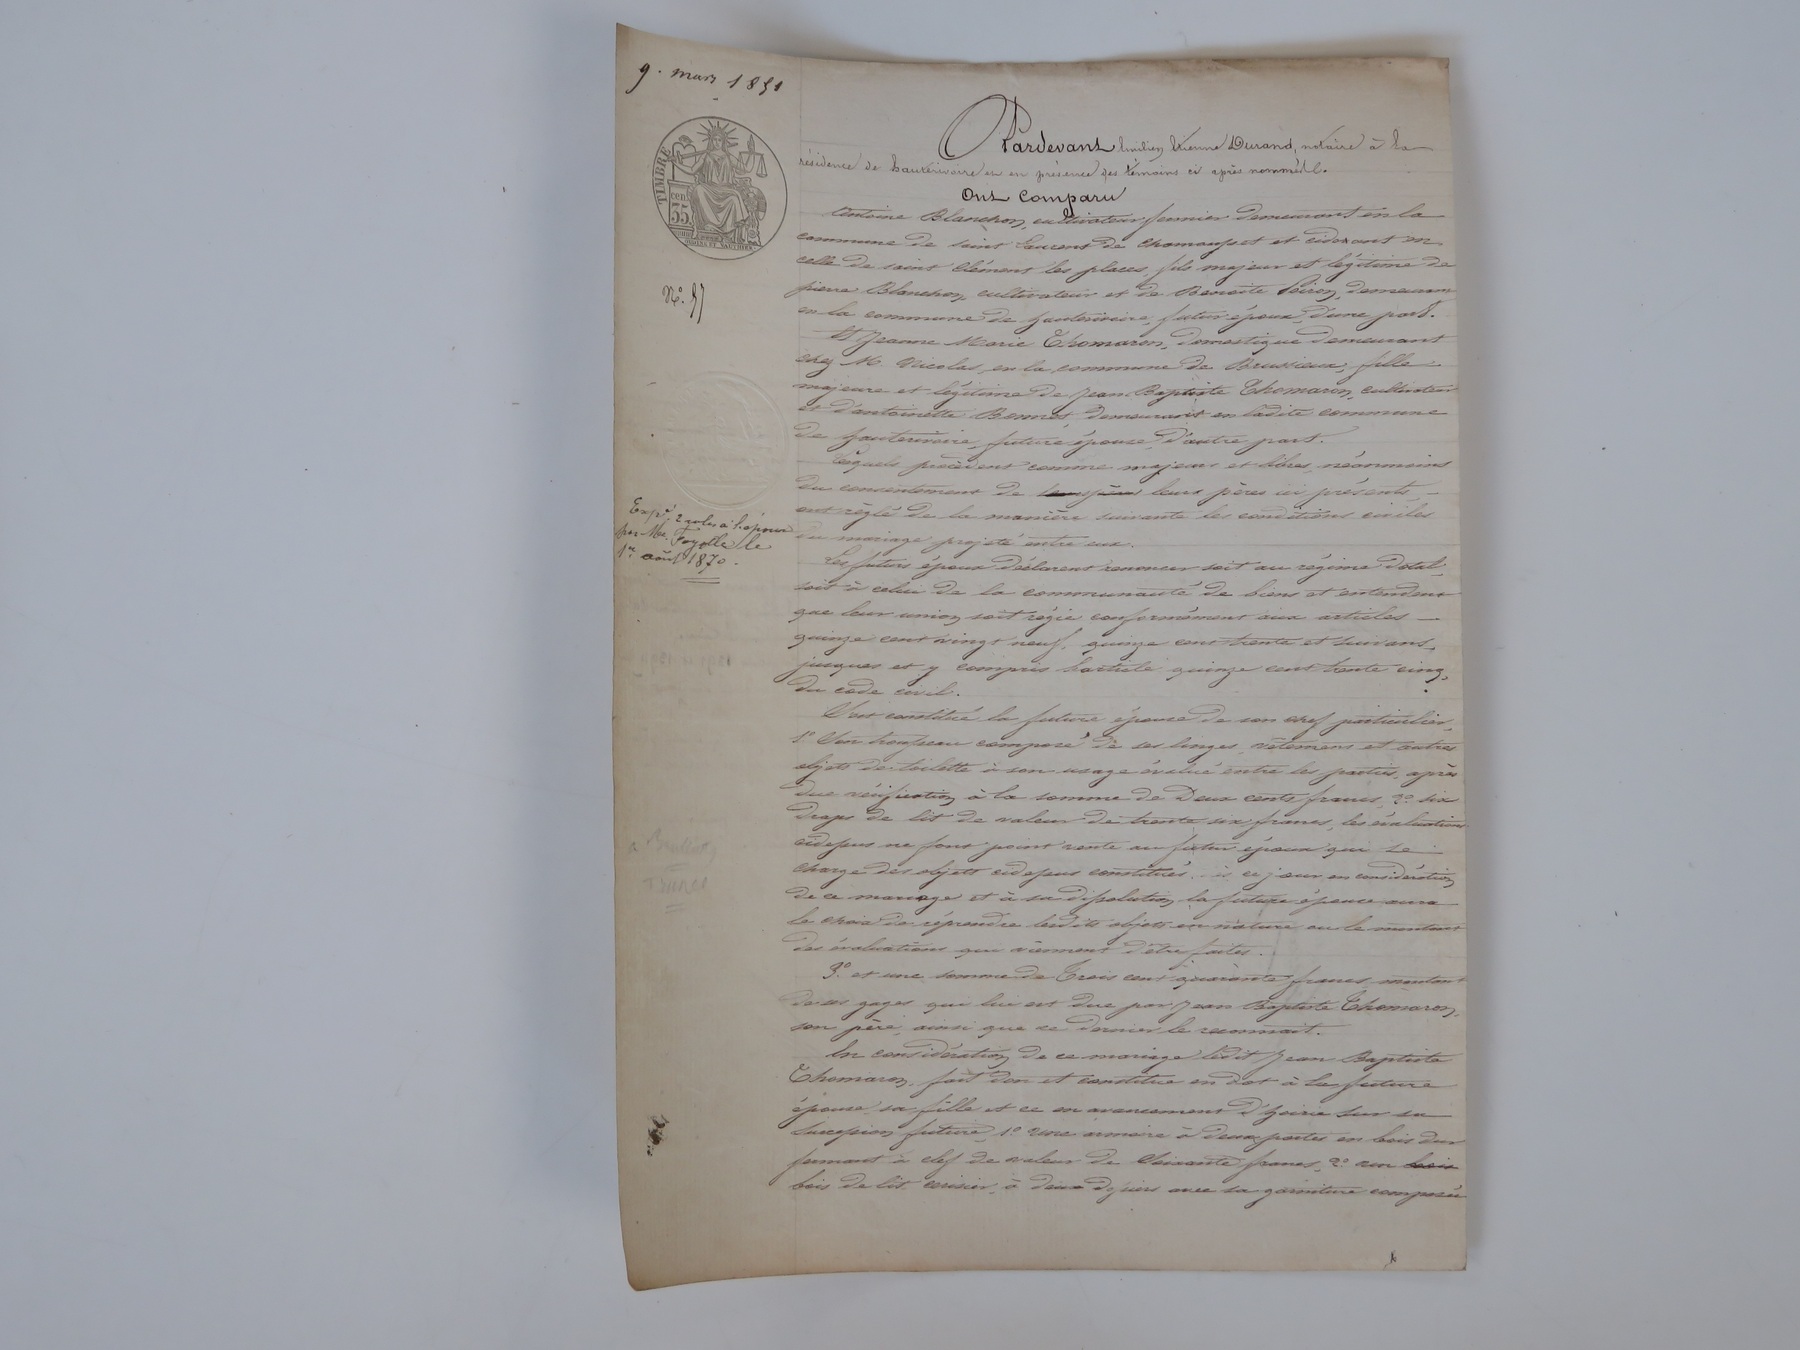 9. mars 1851
TIMBRE
cent
35
N°. 57
Exp.é 2 roles à l'époux
par Me. Fayolle le
1er août 1870.
Pardevant Emilien Etienne Durand, notaire à la
résidence de hauterivoire et en présence des témoins ci après nommés.
Ont Comparu
Antoine Blanchon, cultivateur fermier demeurant en la
commune de saint Laurent de Chamousset et cidevant en
celle de saint Clément les places, fils majeur et légitime de
pierre Blanchon cultivateur et de Benoite demeurant
en la commune de hauterivoire, futur époux, d'une part.
Et Jeanne Marie Thomaron, domestique demeurant
chez M. Nicolas, en la commune de Brussieux, fille
majeure et légitime de Jean Baptiste Thomaron, cultivateur
et d'antoinette demeurant en ladite commune
de hauterivoire, future épouse, d'autre part.
Lesquels procèdent comme majeurs et libres, néanmoins
du consentement de leurs pères ici présents,
ont réglé de la manière suivante les conditions civiles
du mariage projeté entre eux.
Les futurs époux déclarent renoncer soit au régime dotal,
soit à celui de la communauté de biens et entendent
que leur union soit régie conformément aux articles
quinze cent vingt neuf, quinze cent trente et suivans,
jusques et y compris l'article quinze cent trente cinq,
du code civil.
S'est constitué la future épouse de son chef particulier,
1° Son trousseau composé de ses linges, vêtemens et autres
objets de toilette à son usage évalué entre les parties, après
due vérification à la somme de Deux cents francs, 2° six
draps de lit de valeur de trente six francs, les évaluations
cidessus ne font point vente au futur époux qui se
charge des objets cidessus constitués, ce jour en considération
de ce mariage et à sa dissolution, la future épouse aura
le choix de réprendre lesdits objets en nature ou le montant
des évaluations qui viennent d'être faites.
3° et une somme de Trois cent quarante francs montant
de ses gages qui lui est due par Jean Baptiste Thomaron,
son père, ainsi que ce dernier le reconnait.
En considération de ce mariage ledit Jean Baptiste
Thomaron, fait don et constitue en dot à la future
épouse, sa fille et ce en avancement d'hoirie sur sa
succession future, 1° Une armoire à deux portes en bois dur
fermant à clef de valeur de Soixante francs, 2° un bois
bois de lit cerisier, à deux dossiers avec sa garniture composée